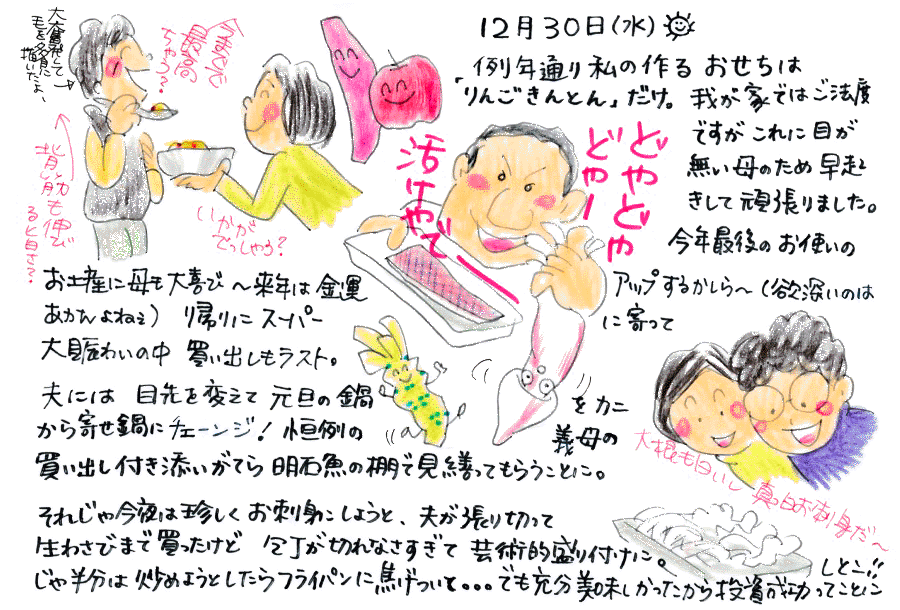 12月30日(水)
例年通り私の作る おせちは
「りんごきんとん」だけ。 我が家ではご法度
ですが これに目が
無い母のため 早起
きして 頑張りました。
今年最後の お使いの
お土産に母も大喜び〜来年は 金運
アップするかしら〜(欲深いのは
あかんよねぇ) 帰りに スーパー
に寄って
大賑わいの中 買い出しもラスト。
夫には 目先を変えて 元旦の鍋
をカニ
から寄せ鍋にチェーンジ! 恒例の
義母の
買い出し付き添いがてら 明石魚の棚で見繕ってもらうことに。
それじゃ今夜は珍しく お刺身にしようと、夫が張り切って
生わさびまで買ったけど 包丁が切れなさすぎて 芸術的盛り付けに。
じゃ半分は 炒めようとしたらフライパンに焦げついと...でも充分美味しかったから投資成功ってことに
しとこ!!
大奮発して
毛を多目に
描いたよ〜
最高
ちゃう?
背筋も伸び
いかが
でっしゃろ?
どやどや
どやー
活けやでー
大根も白いし 真っ白お刺身だ〜